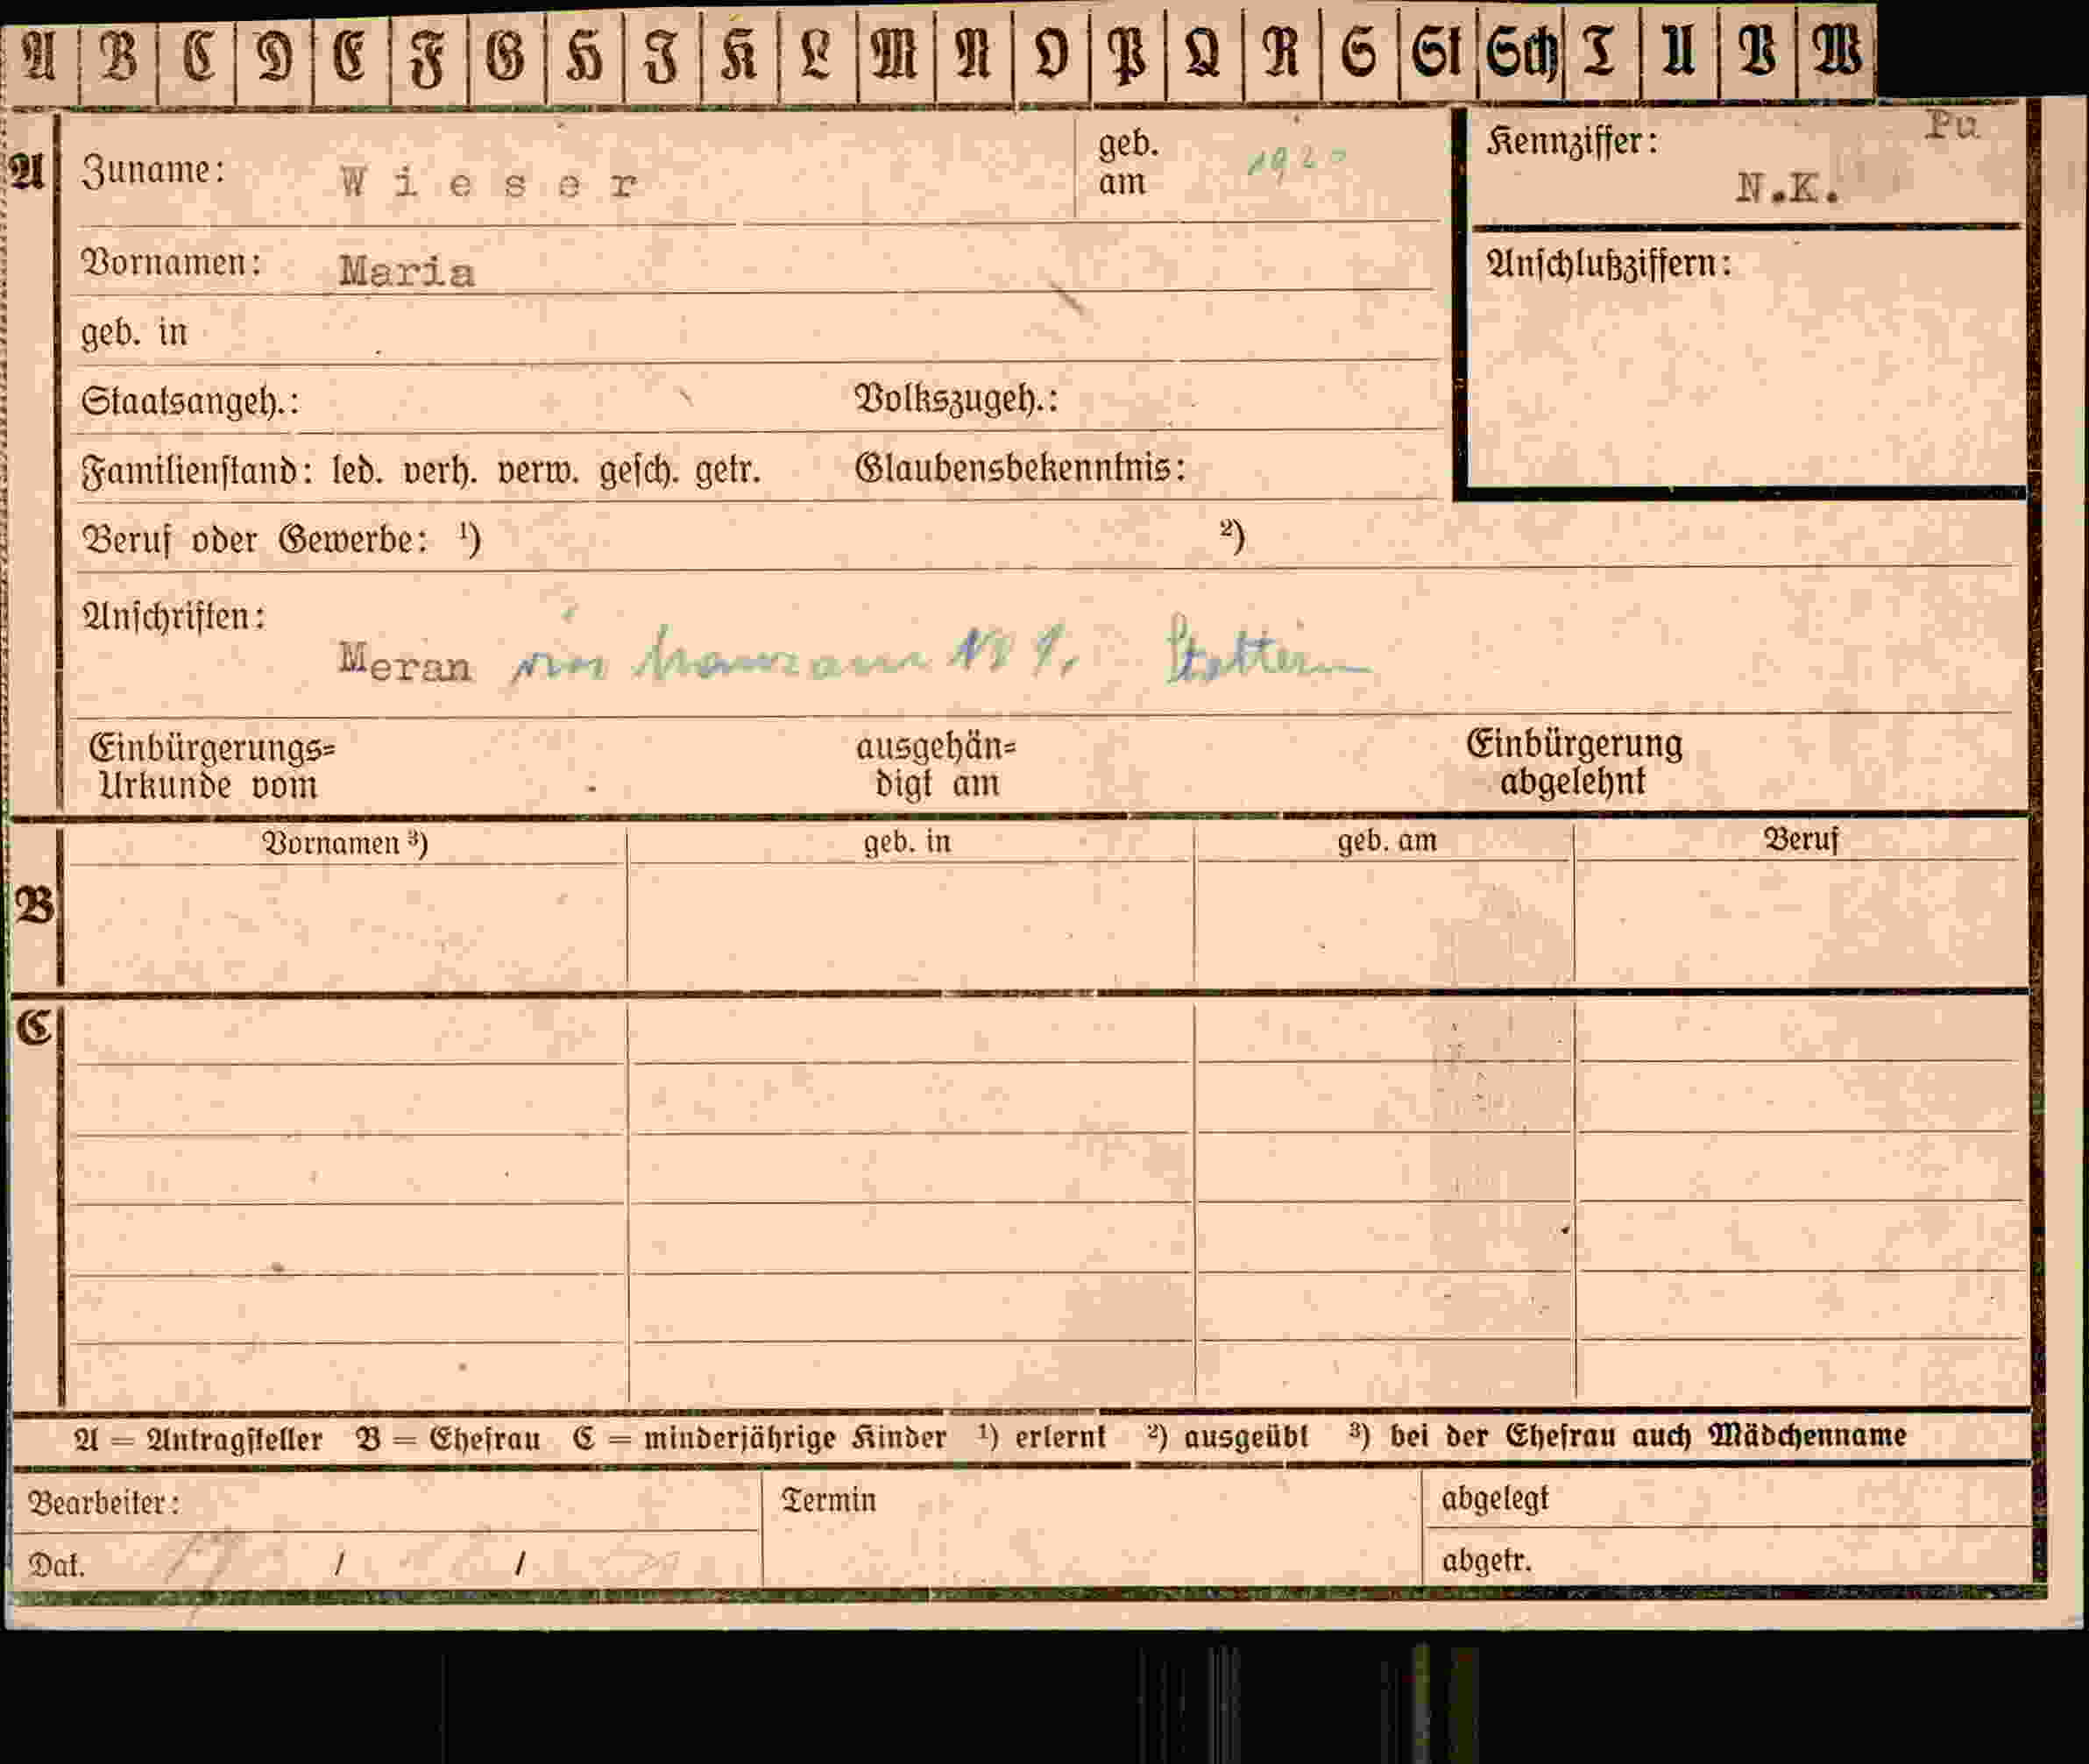 A B C D E F G H I K L M N O P Q R S St Sch T U V W
A Zuname: Wieser geb. am 1920
Kennziffer: Pu
N.K.
Vornamen: Maria
Anschlußziffern:
geb. in
Staatsangeh.: Volkszugeh.:
Familienstand: led. verh. verw. gesch. getr. Glaubensbekenntnis:
Beruf oder Gewerbe: ¹) ²)
Anschriften:
Meran via
Einbürgerungs= ausgehän= Einbürgerung
Urkunde vom digt am abgelehnt
B Vornamen ³) geb. in geb. am Beruf
C
A = Antragsteller B = Ehefrau C = minderjährige Kinder ¹) erlernt ²) ausgeübt ³) bei der Ehefrau auch Mädchenname
Bearbeiter: Termin abgelegt
Dat. / / abgetr.